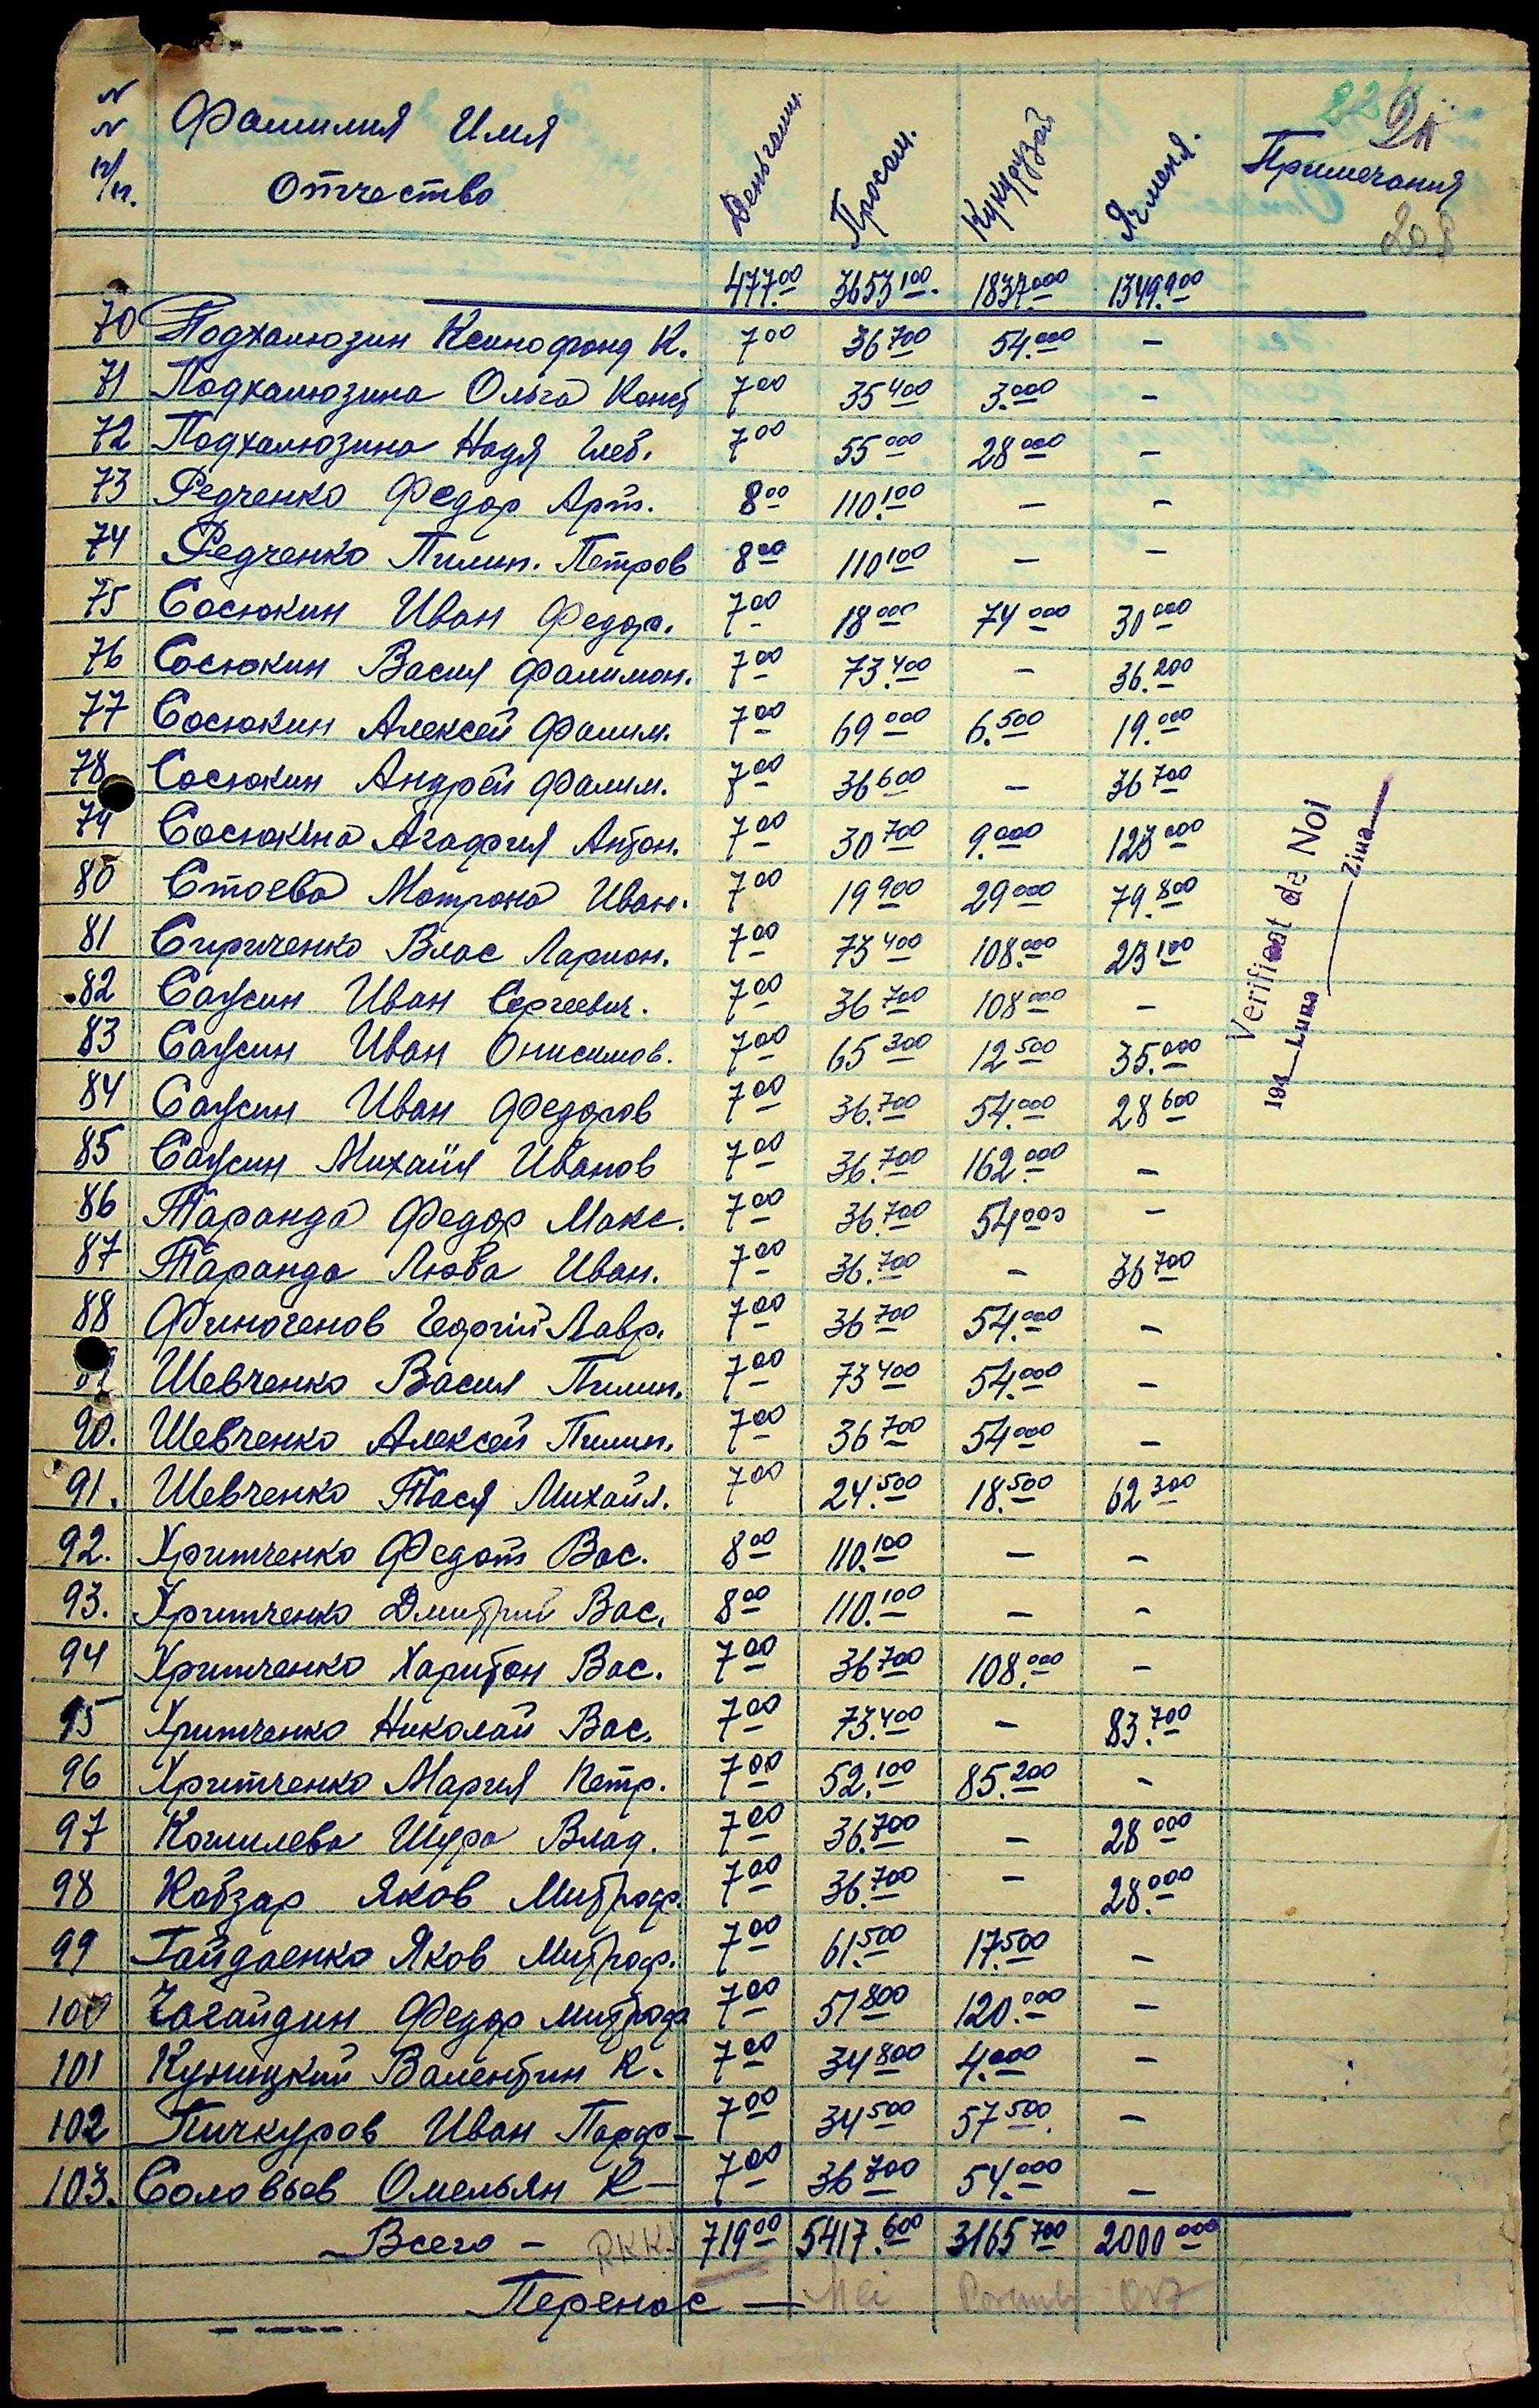 N Фамилия Имя Деньгами. Просом. Кукурузой Ячменя. Примечания
N
п/п. Отчество
208
477.00 3653 100. 1837.000 1349.900
70 Подхалюзин Ксинофонд К. 7 00 36 700 54.000 —
71 Подхалюзина Ольга Конст 7 00 35 400 3.000 —
72 Подхалюзина Надя Глеб. 7 00 55 000 28 000 —
73 Редченко Федор Арт. 8 00 110.100 — —
74 Редченко Пилип. Петров 8 00 110 100 — —
75 Сосюкин Иван Федор. 7 00 18 000 74 000 30 000
76 Сосюкин Васил Фалимон. 7 00 73.400 — 36.200
77 Сосюкин Алексей Фалим. 7 00 69 000 6.500 19.000
78 Сосюкин Андрей Фалим. 7 00 36 600 — 36 700
79 Сосюкіна Агафия Антон. 7 00 30 700 9.000 123 000
80 Стоева Матрона Иван. 7 00 19 900 29 000 79.800
81 Сириченко Влас Ларион. 7 00 73 400 108.000 23 100
82 Саусин Иван Сергеевич. 7 00 36 700 108 000 —
83 Саусин Иван Онисимов. 7 00 65 300 12 500 35.000
84 Саусин Иван Федоров 7 00 36.700 54.000 28 600
85 Саусин Михаил Иванов 7 00 36.700 162.000 —
86 Таранда Федор Макс. 7 00 36.700 54 000 —
87 Таранда Люба Иван. 7 00 36.700 — 36 700
88 Финогенов Георгій Лавр. 7 00 36 700 54.000 —
Шевченко Васил Пилип. 7 00 73 400 54.000 —
90. Шевченко Алексей Пилип. 7 00 36 700 54 000 —
91. Шевченко Тася Михайл. 7 00 24.500 18.500 62 300
92. Хритченко Федот Вас. 8 00 110.100 — —
93. Хритченко Дмитрий Вас. 8 00 110.100 — —
94 Хритченко Харитон Вас. 7 00 36 700 108.000 —
95 Хритченко Николай Вас. 7 00 73.400 — 83.700
96 Хритченко Мария Петр. 7 00 52.100 85.200 —
97 Кошилева Шура Влад. 7 00 36.700 — 28 000
98 Кобзар Яков Митроф. 7 00 36.700 — 28.000
99 Гайдаенко Яков Митроф. 7 00 61.500 17.500 —
100 Чагайдин Федор Митроф 7 00 51 800 120.000 —
101 Куницкий Валентин К. 7 00 34 800 4.000 —
102 Пичкуров Иван Парф– 7 00 34 500 57 500. —
103. Соловьев Омельян К– 7 00 36 700 54.000 —
Всего – 719 00 5417.600 3165 700 2000 000
Перенос — Mei
Verificat de Noi
194 Luna Ziua